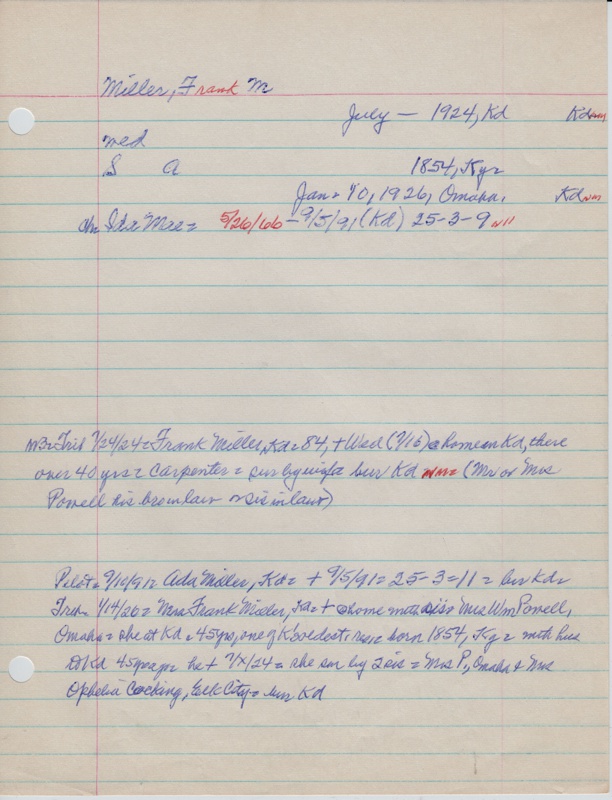 Miller, Frank M
July — 1924, Kd Kd NM
wed
S A 1854, Ky=
Jan= 10, 1926, Omaha, Kd NM
ch= Ida Mae= 5/26/66 – 9/5/91 (Kd) 25-3-9
Trib 7/24/24= Frank Miller, Kd= 84, + Wed (7/16) @ home in Kd, there
over 40 yrs= Carpenter= sur by wife bur Kd NM= (Mr or Mrs
Powell his broinlaw or sisinlaw)
Pilot= 9/10/91= Ada Miller, Kd= + 9/5/91= 25-3-11= bur Kd=
Trib= 1/14/26= Mrs Frank Miller, Kd= + @ home with sis= Mrs Wm Powell,
Omaha= she at Kd= 45 yrs, one of K's oldest born 1854, Ky= with hus
to Kd 45 yrs ago= he + 7/x/24= she sur by 2 sis= Mrs P., Omaha & Mrs
Ophelia Cocking, Elk City= bur Kd